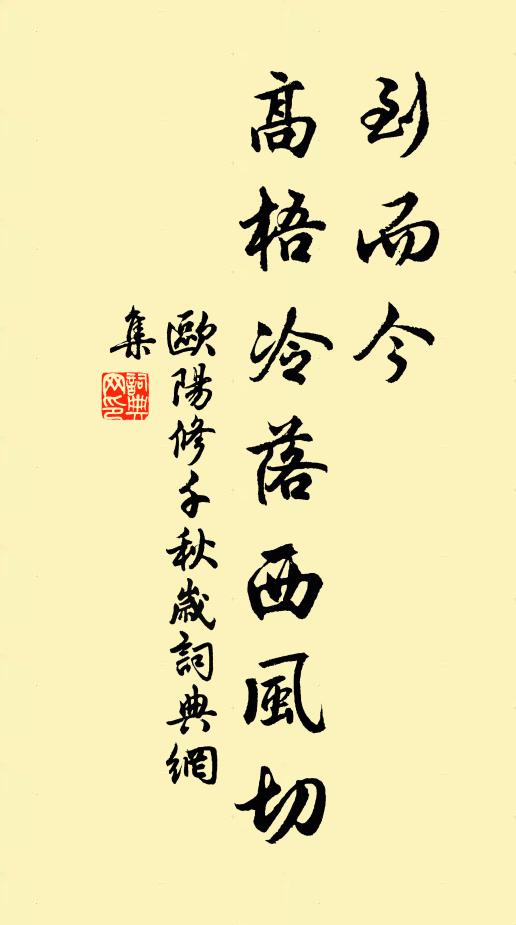 到而今
高梧冷落西風切
歐陽修千秋歲詞典網
集
詞典网印